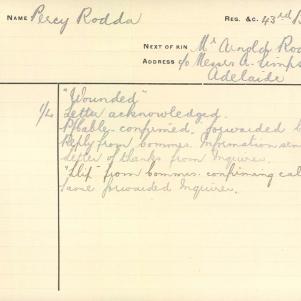 NAME Percy Rodda REG. &C. 43rd
NEXT OF KIN Mr Arnold
ADDRESS c/o Messrs A. Simps
Adelaide
"Wounded"
1/4 Letter acknowledged.
confirmed. forwarded
Reply from Commrs. Information sen
Letter of thanks from Inquirer.
"Slip" from Commrs. confirming cab
same forwarded Inquirer.